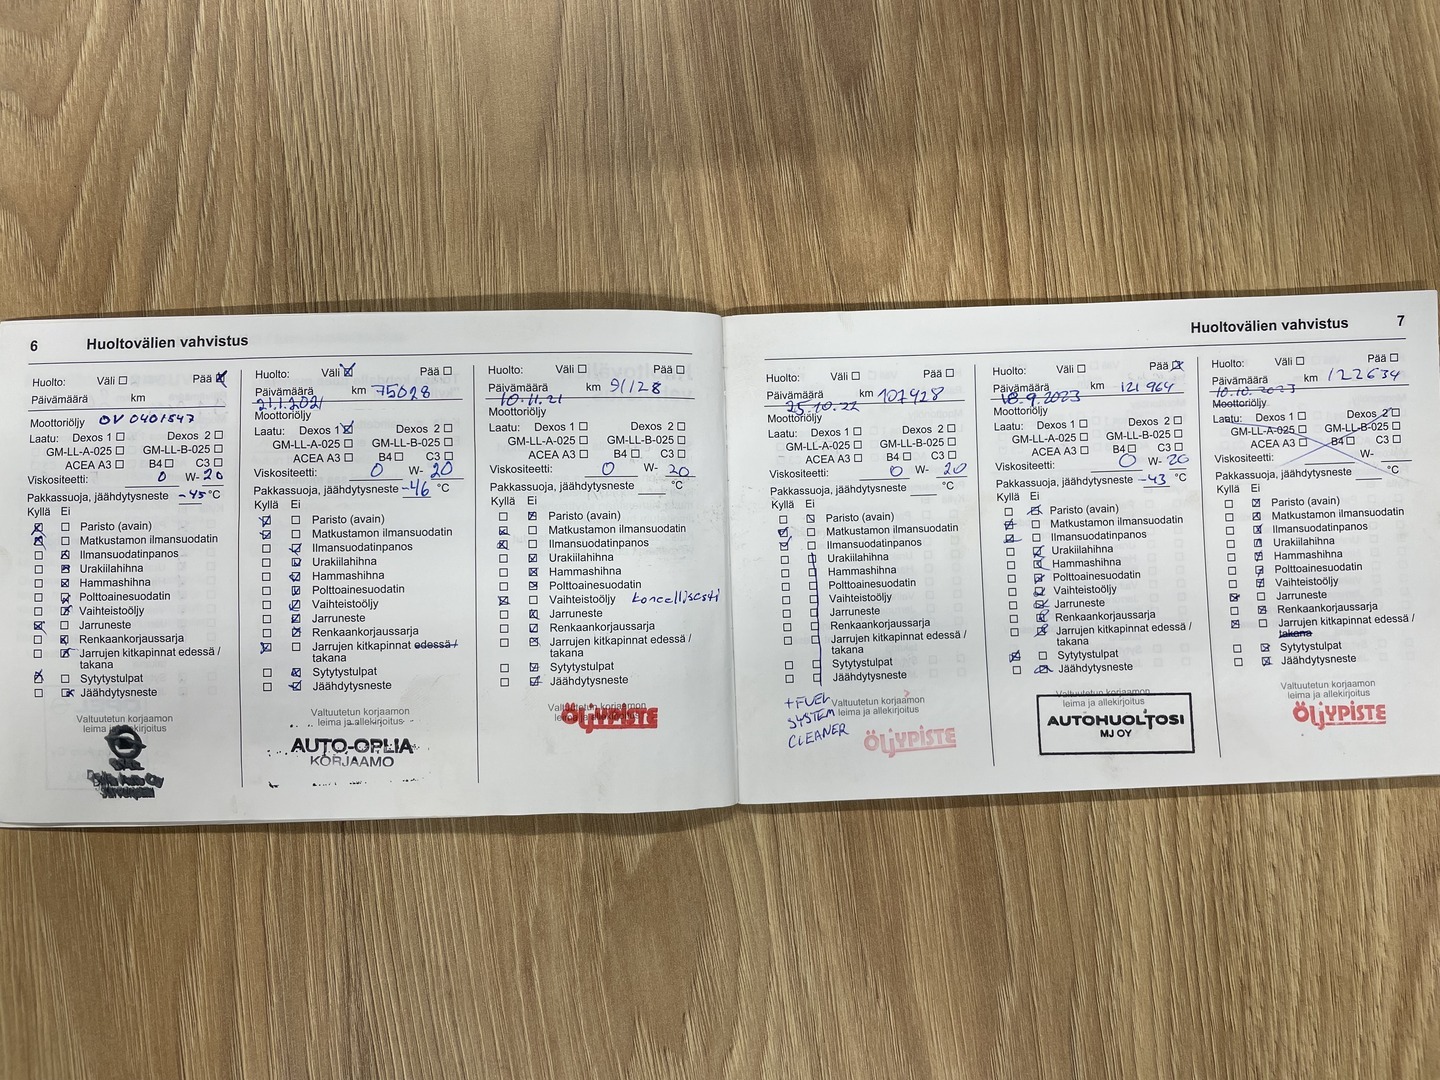 6 Huoltovälien vahvistus
Huolto: Väli Pää
Päivämäärä km
Moottoriöljy OV 0401547
Laatu: Dexos 1 Dexos 2
GM-LL-A-025 GM-LL-B-025
ACEA A3 B4 C3
Viskositeetti: 0 W- 20
Pakkassuoja, jäähdytysneste -45 °C
Kyllä Ei
Paristo (avain)
Matkustamon ilmansuodatin
Ilmansuodatinpanos
Urakiilahihna
Hammashihna
Polttoainesuodatin
Vaihteistoöljy
Jarruneste
Renkaankorjaussarja
Jarrujen kitkapinnat edessä /
takana
Sytytystulpat
Jäähdytysneste
Valtuutetun korjaamon
leima ja allekirjoitus
Huolto: Väli Pää
Päivämäärä km 75028
21.1.2021
Moottoriöljy
Laatu: Dexos 1 Dexos 2
GM-LL-A-025 GM-LL-B-025
ACEA A3 B4 C3
Viskositeetti: 0 W- 20
Pakkassuoja, jäähdytysneste -46 °C
Kyllä Ei
Paristo (avain)
Matkustamon ilmansuodatin
Ilmansuodatinpanos
Urakiilahihna
Hammashihna
Polttoainesuodatin
Vaihteistoöljy
Jarruneste
Renkaankorjaussarja
Jarrujen kitkapinnat edessä /
takana
Sytytystulpat
Jäähdytysneste
Valtuutetun korjaamon
leima ja allekirjoitus
AUTO-OPLIA
KORJAAMO
Huolto: Väli Pää
Päivämäärä km 91128
10.11.21
Moottoriöljy
Laatu: Dexos 1 Dexos 2
GM-LL-A-025 GM-LL-B-025
ACEA A3 B4 C3
Viskositeetti: 0 W- 20
Pakkassuoja, jäähdytysneste °C
Kyllä Ei
Paristo (avain)
Matkustamon ilmansuodatin
Ilmansuodatinpanos
Urakiilahihna
Hammashihna
Polttoainesuodatin
Vaihteistoöljy
Jarruneste
Renkaankorjaussarja
Jarrujen kitkapinnat edessä /
takana
Sytytystulpat
Jäähdytysneste
Valtuutetun korjaamon
leima ja allekirjoitus
ÖLJYPISTE
Huoltovälien vahvistus 7
Huolto: Väli Pää
Päivämäärä km 107428
25.10.22
Moottoriöljy
Laatu: Dexos 1 Dexos 2
GM-LL-A-025 GM-LL-B-025
ACEA A3 B4 C3
Viskositeetti: 0 W- 20
Pakkassuoja, jäähdytysneste °C
Kyllä Ei
Paristo (avain)
Matkustamon ilmansuodatin
Ilmansuodatinpanos
Urakiilahihna
Hammashihna
Polttoainesuodatin
Vaihteistoöljy
Jarruneste
Renkaankorjaussarja
Jarrujen kitkapinnat edessä /
takana
Sytytystulpat
Jäähdytysneste
+FUEL
SYSTEM
CLEANER
Valtuutetun korjaamon
leima ja allekirjoitus
ÖLJYPISTE
Huolto: Väli Pää
Päivämäärä km 121964
18.9.2023
Moottoriöljy
Laatu: Dexos 1 Dexos 2
GM-LL-A-025 GM-LL-B-025
ACEA A3 B4 C3
Viskositeetti: 0 W- 20
Pakkassuoja, jäähdytysneste -43 °C
Kyllä Ei
Paristo (avain)
Matkustamon ilmansuodatin
Ilmansuodatinpanos
Urakiilahihna
Hammashihna
Polttoainesuodatin
Vaihteistoöljy
Jarruneste
Renkaankorjaussarja
Jarrujen kitkapinnat edessä /
takana
Sytytystulpat
Jäähdytysneste
Valtuutetun korjaamon
leima ja allekirjoitus
AUTOHUOLTOSI
MJ OY
Huolto: Väli Pää
Päivämäärä km 122634
10.10.2023
Moottoriöljy
Laatu: Dexos 1 Dexos 2
GM-LL-A-025 GM-LL-B-025
ACEA A3 B4 C3
Viskositeetti: W-
Pakkassuoja, jäähdytysneste °C
Kyllä Ei
Paristo (avain)
Matkustamon ilmansuodatin
Ilmansuodatinpanos
Urakiilahihna
Hammashihna
Polttoainesuodatin
Vaihteistoöljy
Jarruneste
Renkaankorjaussarja
Jarrujen kitkapinnat edessä /
takana
Sytytystulpat
Jäähdytysneste
Valtuutetun korjaamon
leima ja allekirjoitus
ÖLJYPISTE